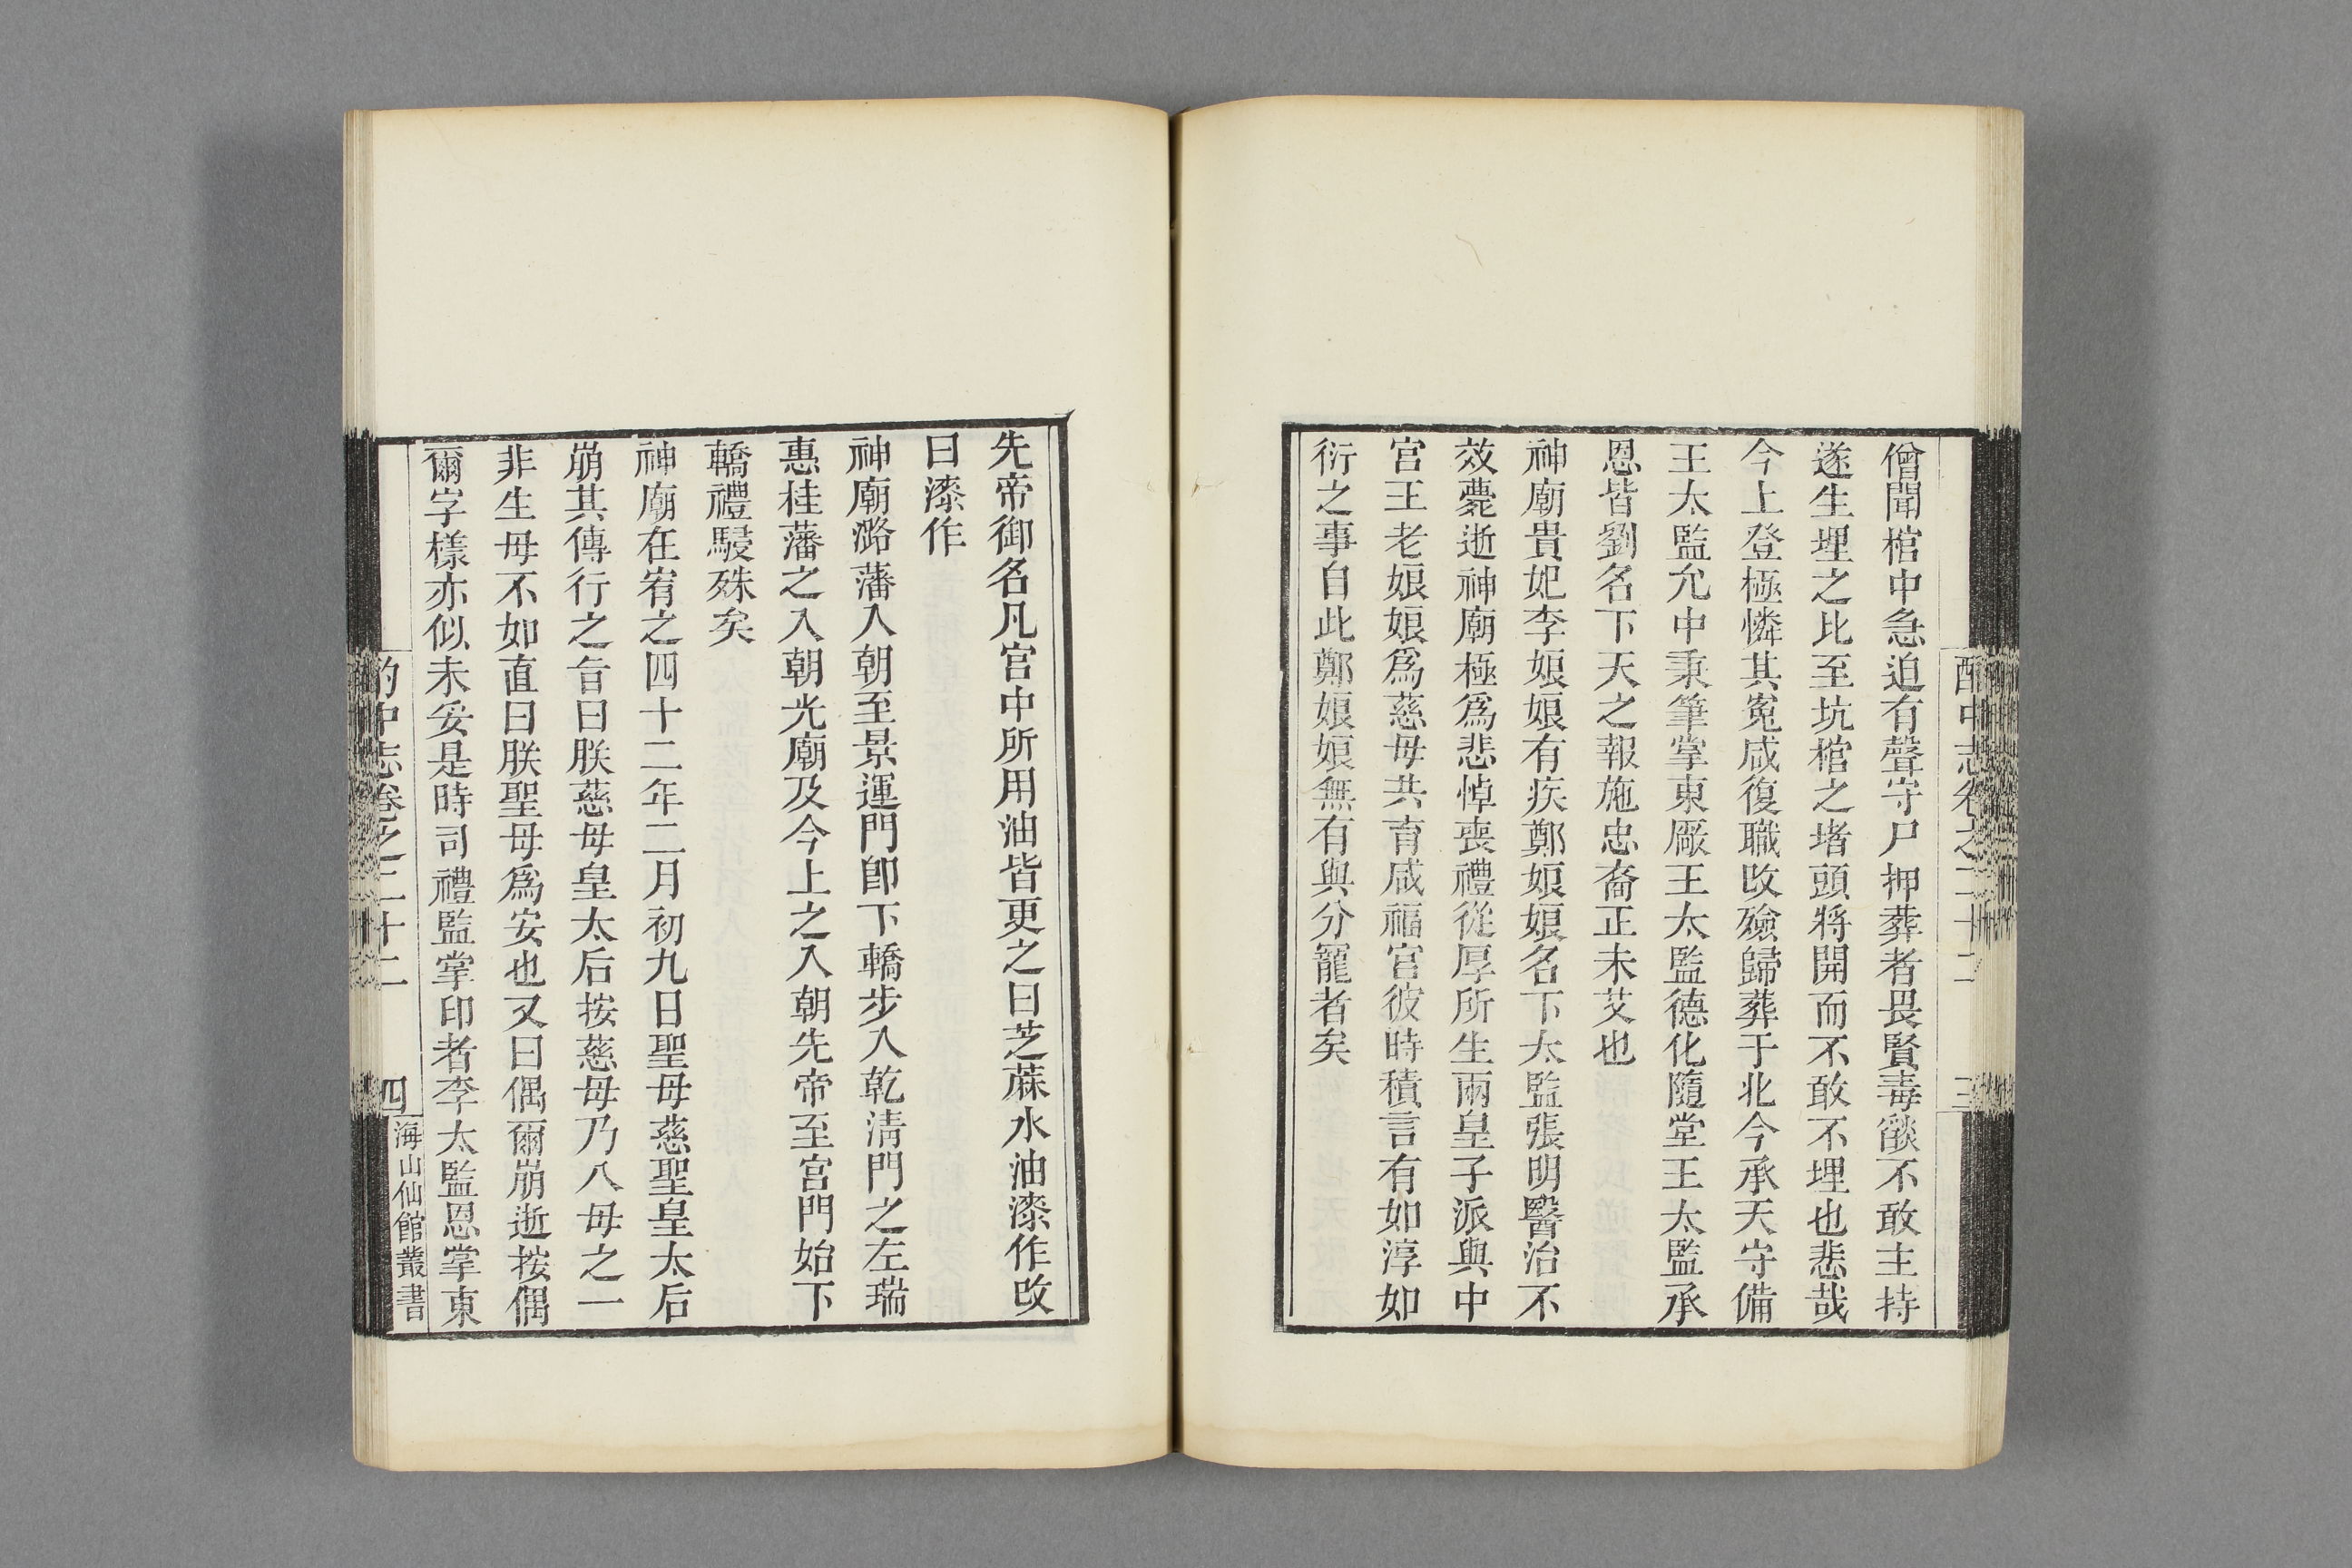 僧聞棺中急迫有聲守尸押葬者畏賢毒燄不敢主持
遂生埋之比至坑棺之堵頭將開而不敢不埋也悲哉
今上登極憐其冤咸復職改殮歸葬于北今承天守備
王太監允中秉筆掌東厰王太監德化隨堂王太監承
恩皆劉名下天之報施忠裔正未艾也
神廟貴妃李娘娘有疾鄭娘娘名下太監張明醫治不
效薨逝神廟極爲悲悼喪禮從厚所生兩皇子派與中
宮王老娘娘爲慈母共育咸福宮彼時積言有如淳如
衍之事自此鄭娘娘無有與分寵者矣
酌中志卷之二十二
三
先帝御名凡宮中所用油皆更之曰芝蔴水油漆作改
曰漆作
神廟潞藩入朝至景運門卽下轎步入乾淸門之左瑞
惠桂藩之入朝光廟及今上之入朝先帝至宮門始下
轎禮駸殊矣
神廟在宥之四十二年二月初九日聖母慈聖皇太后
崩其傳行之旨曰朕慈母皇太后按慈母乃八母之一
非生母不如直曰朕聖母爲安也又曰偶爾崩逝按偶
爾字樣亦似未妥是時司禮監掌印者李太監恩掌東
酌中志卷之二十二
四
海山仙館叢書